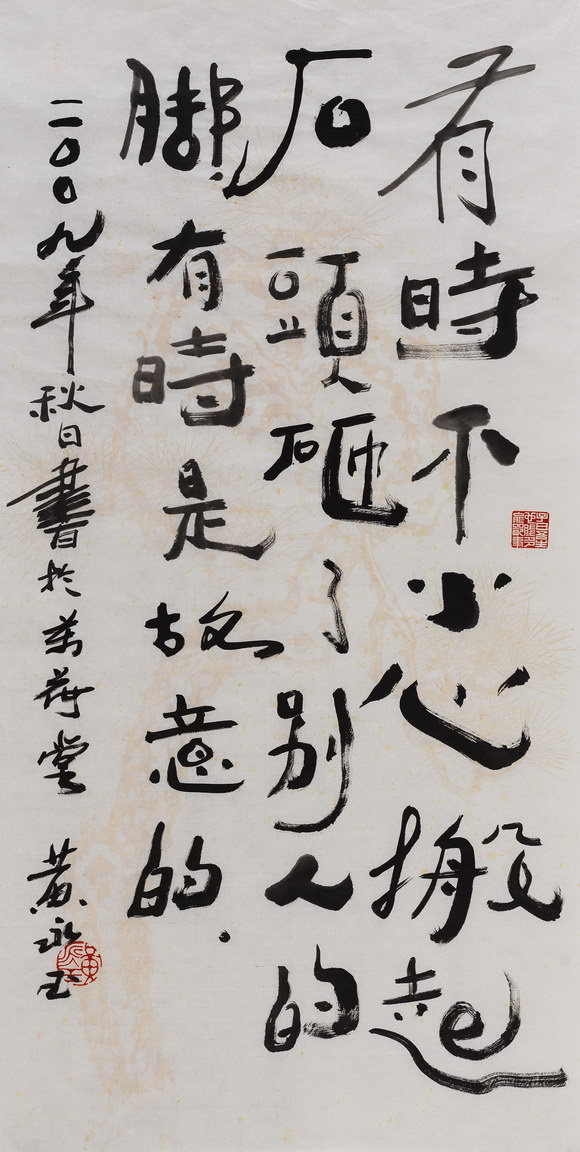 有時不小心搬起
石頭砸了別人的
脚,有時是故意的.
二〇〇九年秋日書於萬荷堂 黃永玉